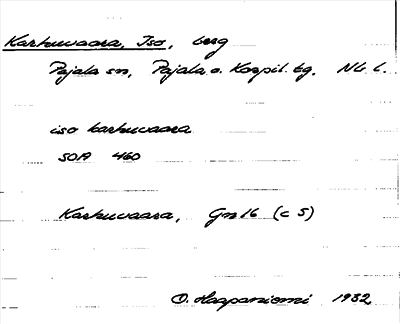 Karhuvaara, Iso, berg
Pajala sn, Pajala o. Korpil. tg. Nb. l.
iso karhuvaara
SOA 460
Karhuvaara, Gn 16 (c 5)
O. Haapaniemi 1932